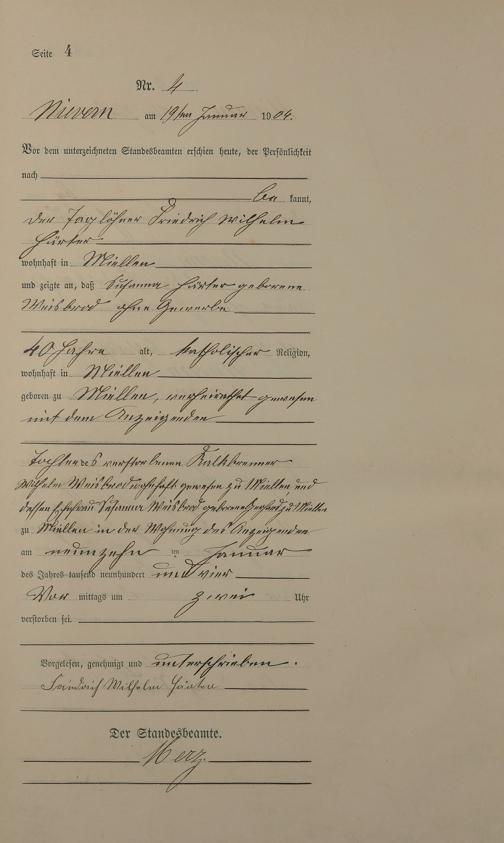 Seite 4
Nr. 4
Nievern am 19ten Januar 1904.
Vor dem unterzeichneten Standesbeamten erschien heute, der Persönlichkeit
nach
be kannt,
der Taglöhner Friedrich Wilhelm
Härter
wohnhaft in Miellen
und zeigte an, daß Susanna Härter geborene
Weisbrod ohne Gewerbe
40 Jahre alt, katholischer Religion,
wohnhaft in Miellen
geboren zu Miellen, verheirathet gewesen
mit dem Anzeigenden
Tochter des verstorbenen Kalkbrenner
Wilhelm Weisbrod wohnhaft gewesen zu Miellen und
dessen Ehefrau Susanna Weisbrod geborene zu Miellen
zu Miellen in der Wohnung des Anzeigenden
am neunzehn ten Januar
des Jahres tausend neunhundert und vier
Vor mittags um zwei Uhr
verstorben sei.
Vorgelesen, genehmigt und unterschrieben.
Friedrich Wilhelm Härter
Der Standesbeamte.
Merz.